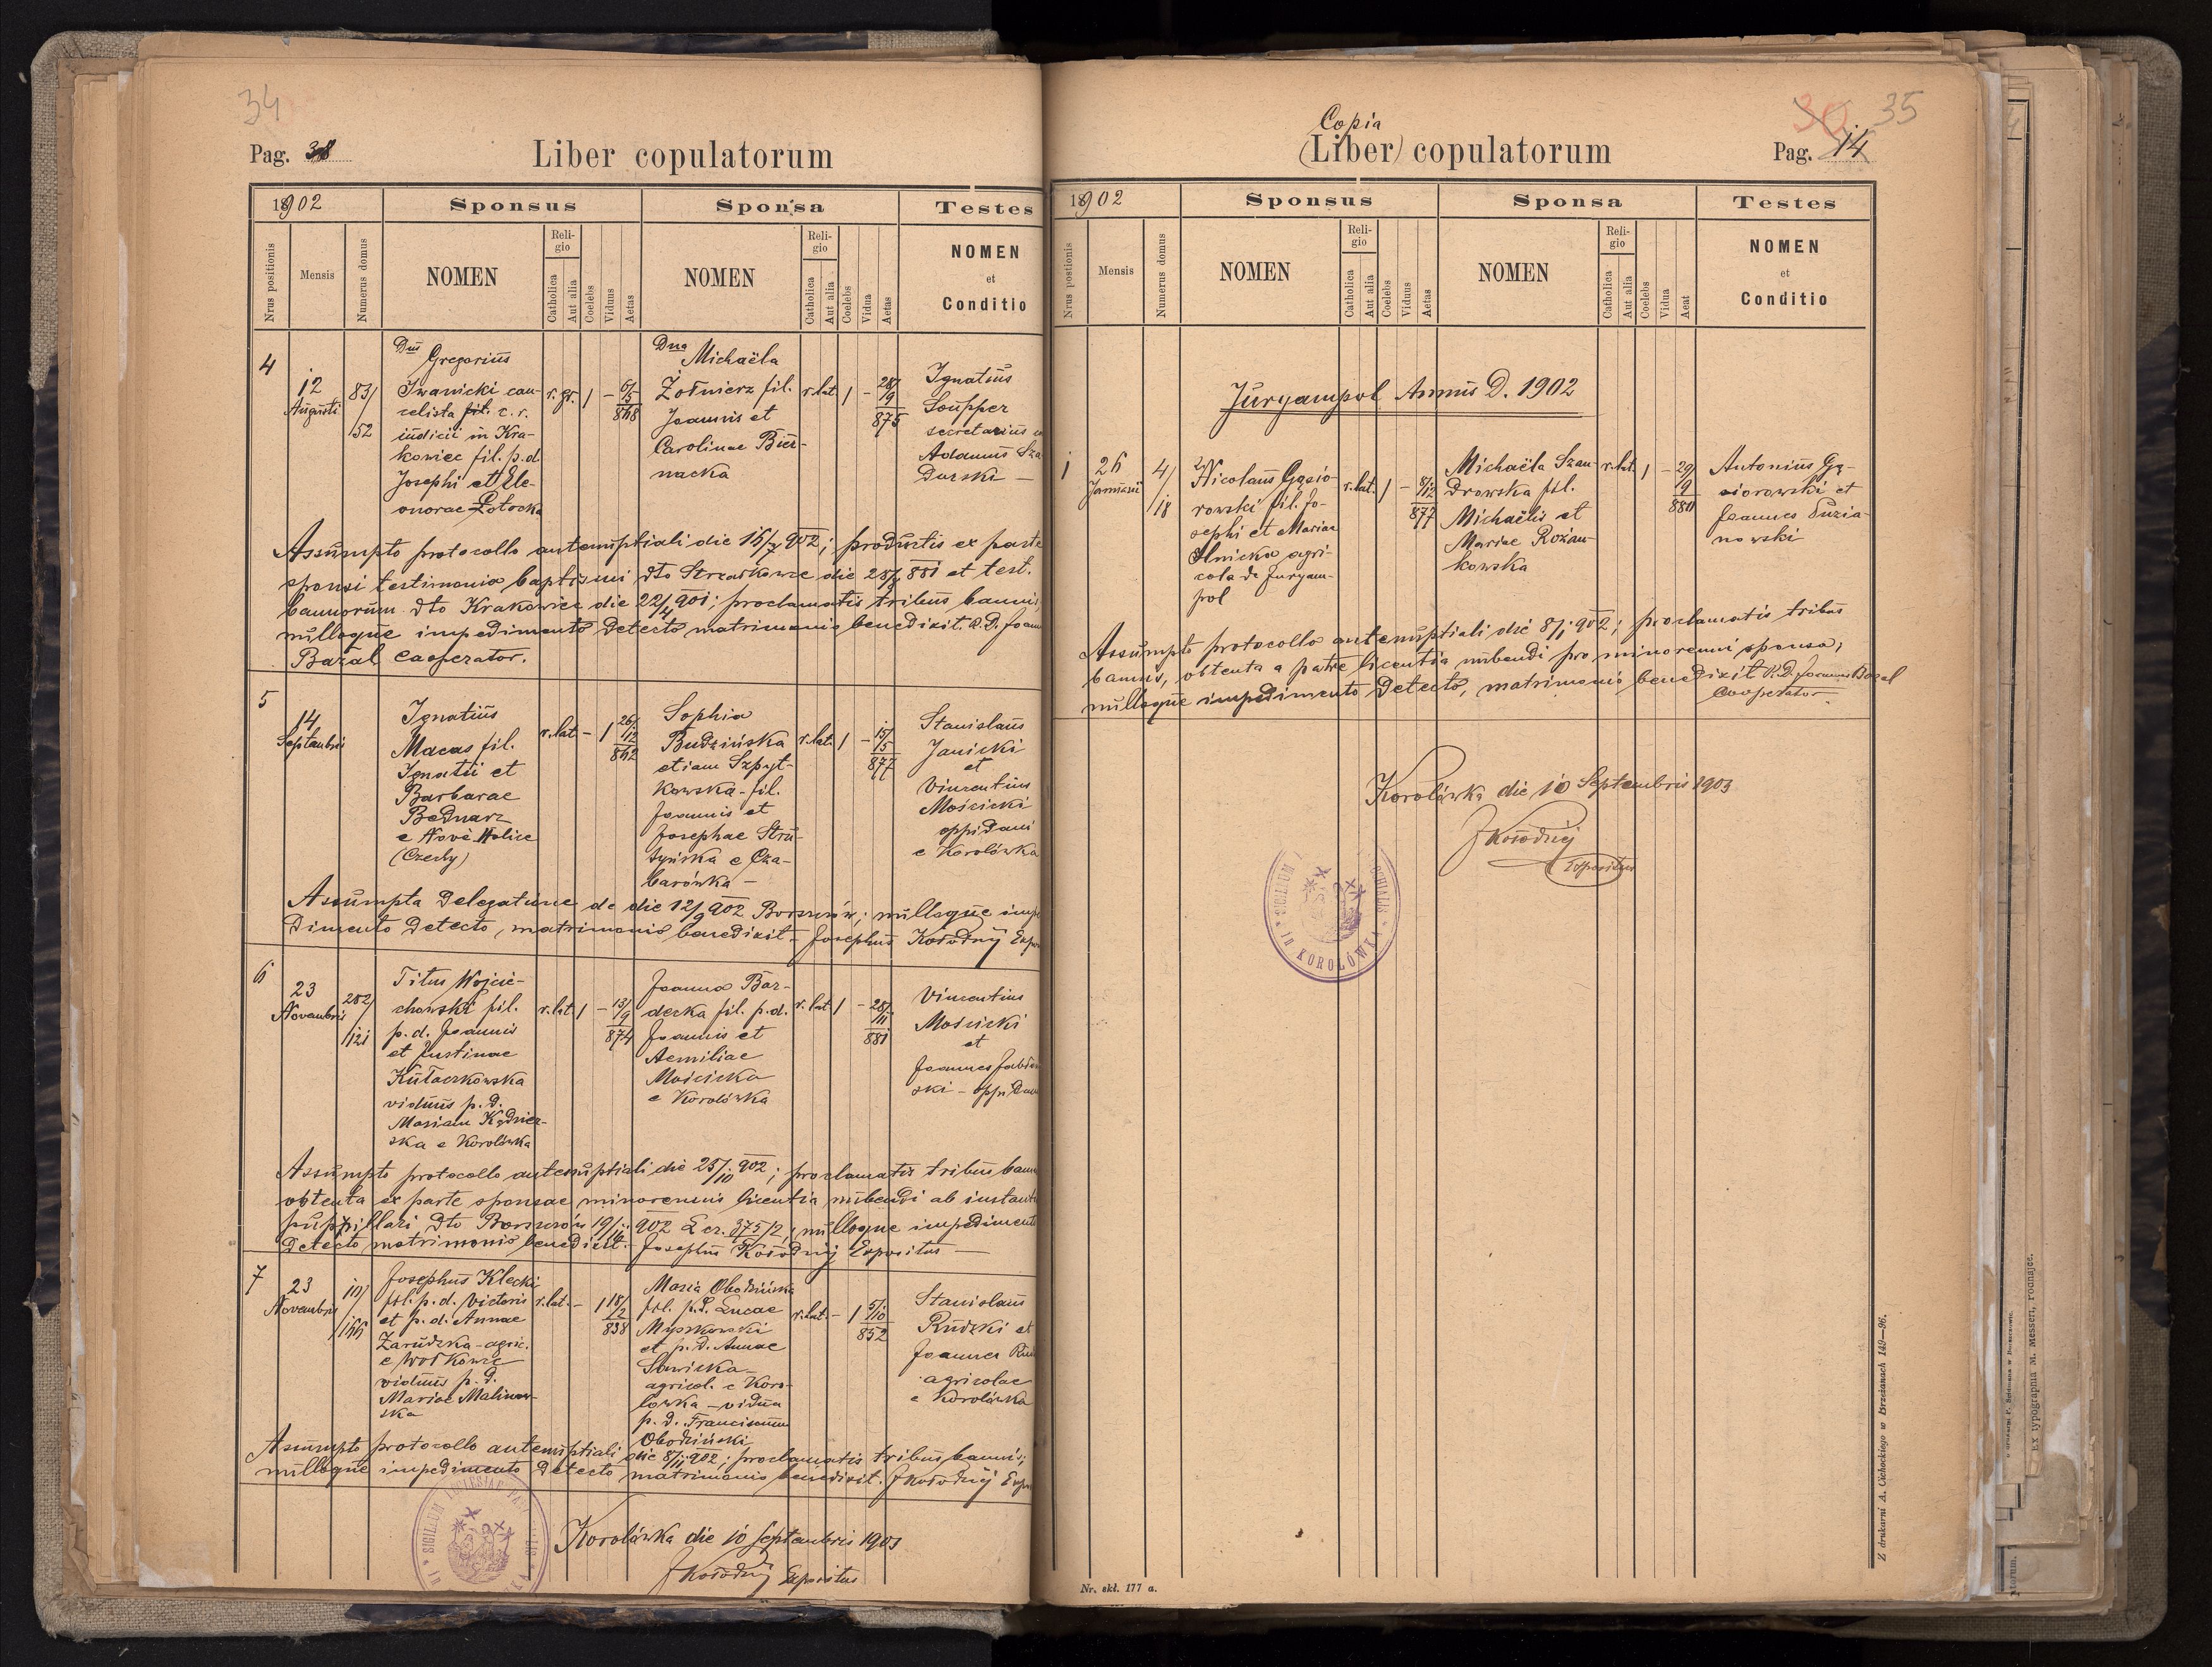 34
Pag. 38
Liber copulatorum
1902
Sponsus
Sponsa
Testes
Nrus positionis
Mensis
Numerus domus
NOMEN
Religio
Catholica
Aut alia
Coelebs
Viduus
Aetas
NOMEN
Religio
Catholica
Aut alia
Coelebs
Vidua
Aetas
NOMEN
et
Conditio
4
12
Augusti
83/
/52
Dnus Gregorius
Iwanicki can-
celista fil. c. r.
iudicii in Kra-
kowiec fil. p. d.
Josephi et Ele-
onorae Potocka
r. gr.
1
-
6/5
868
Dna Michaëla
Żołnierz fil.
Joannis et
Carolinae Bier-
nacka
r. lat.
1
-
28/9
875
Ignatius
Soupper
secretarius
Adamus Sza
Durski —
Assumpto protocollo antenuptiali die 15/7 902; productis ex parte
sponsi testimonio baptismi dto Strzałkowce die 25/8 881 et test.
bannorum dto Krakowiec die 22/4 901; proclamatis tribus bannis,
nulloque impedimento detecto, matrimonio benedixit R. D. Joann
Bazal Cooperator.
5
14
Septembris
Ignatius
Macas fil.
Ignatii et
Barbarae
Bednarz
e Nové Holice
(Czechy)
r. lat.
-
1
26/12
862
Sophia
Budzińska
etiam Szpyt-
kowska - fil.
Joannis et
Josephae Stru-
tyńska e Cza-
barówka —
r. lat.
1
-
15/5
877
Stanislaus
Janicki
et
Vincentius
Mościcki
oppidani
e Korolówka
Assumpta Delegatione de die 12/9 902 Borszczów; nulloque impe
dimento detecto, matrimonio benedixit - Josephus Kołodzij Expo
6
23
Novembris
282/
/121
Titus Wojcie-
chowski fil.
p. d. Joannis
et Justinae
Kułaczkowska
viduus p. d.
Mariam Kędzier-
ska e Korolówka
r. lat.
1
-
13/9
874
Joanna Bar-
decka fil. p. d.
Joannis et
Aemiliae
Mościcka
e Korolówka
r. lat.
1
-
28/11
881
Vincentius
Mościcki
et
Joannes
ski - oppidani
Assumpto protocollo antenuptiali die 25/10 902; proclamatis tribus bann
obtenta ex parte sponsae minorennis licentia nubendi ab instanti
puppillari dto Borszczów 19/11 902 L cz. 375/2; nulloque impedimento
detecto matrimonio benedixit - Josephus Kołodzij Expositus —
7
23
Novembris
/166
Josephus Klecki
fil. p. d. Victoris
et p. d. Annae
Zarudzka - agric.
e Wołkowce
viduus p. d.
Mariae Malinow-
ska
r. lat.
-
1
18/2
838
Maria Obodzińska
fil. p. d. Lucae
Myszkowski
et p. d. Annae
Sawicka -
agricol. e Koro-
lowka - vidua
p. d. Franciscum
Obodziński
r. lat.
-
1
5/10
852
Stanislaus
Rudzki et
Joannes
agricolae
e Korolówka
Assumpto protocollo antenuptiali die 8/11 902; proclamatis tribus bannis;
nulloque impedimento detecto matrimonio benedixit. J Kołodzij Expo
Korolówka die 10 Septembris 1903
J Kołodzij Expositus
35
Copia
(Liber) copulatorum
Pag. 14
1902
Sponsus
Sponsa
Testes
Nrus postionis
Mensis
Numerus domus
NOMEN
Religio
Catholica
Aut alia
Coelebs
Viduus
Aetas
NOMEN
Religio
Catholica
Aut alia
Coelebs
Vidua
Aeat
NOMEN
et
Conditio
Juryampol Annus D. 1902
1
26
Januarii
4/
/18
Nicolaus Gąsio-
rowski fil. Jo-
sephi et Mariae
Ilnicka agri-
cola de Juryam-
pol
r. lat.
1
-
8/12
877
Michaëla Szan-
drowska fil.
Michaëlis et
Mariae Rożan-
kowska
r. lat.
1
-
29/9
880
Antonius Gą-
siorowski et
Joannes Tuzia-
nowski
Assumpto protocollo antenuptiali die 8/1 902; proclamatis tribus
bannis, obtenta a patre licentia nubendi pro minorenni sponsa;
nulloque impedimento detecto, matrimonio benedixit R. D. Joannes Bazal
Cooperator
Korolówka die 10 Septembris 1903
J Kołodzij
Expositus
SIGILLUM
IN KOROLÓWKA
Nr. skł. 177 a.
Z drukarni A. Cichockiego w Brzeżanach 149—96.
Ex typographia M. Messeri, Podhajce.